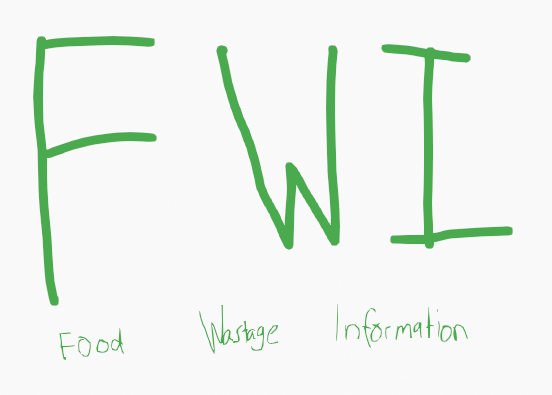 FWI
Food Wastage Information